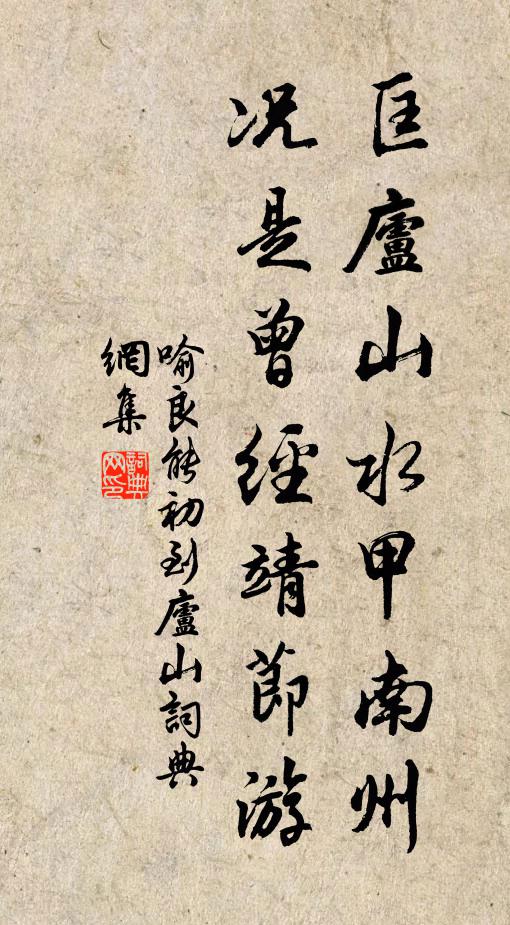 匡廬山水甲南州
况是曾經靖節游
喻良能初到廬山詞典
網集
詞典
网印